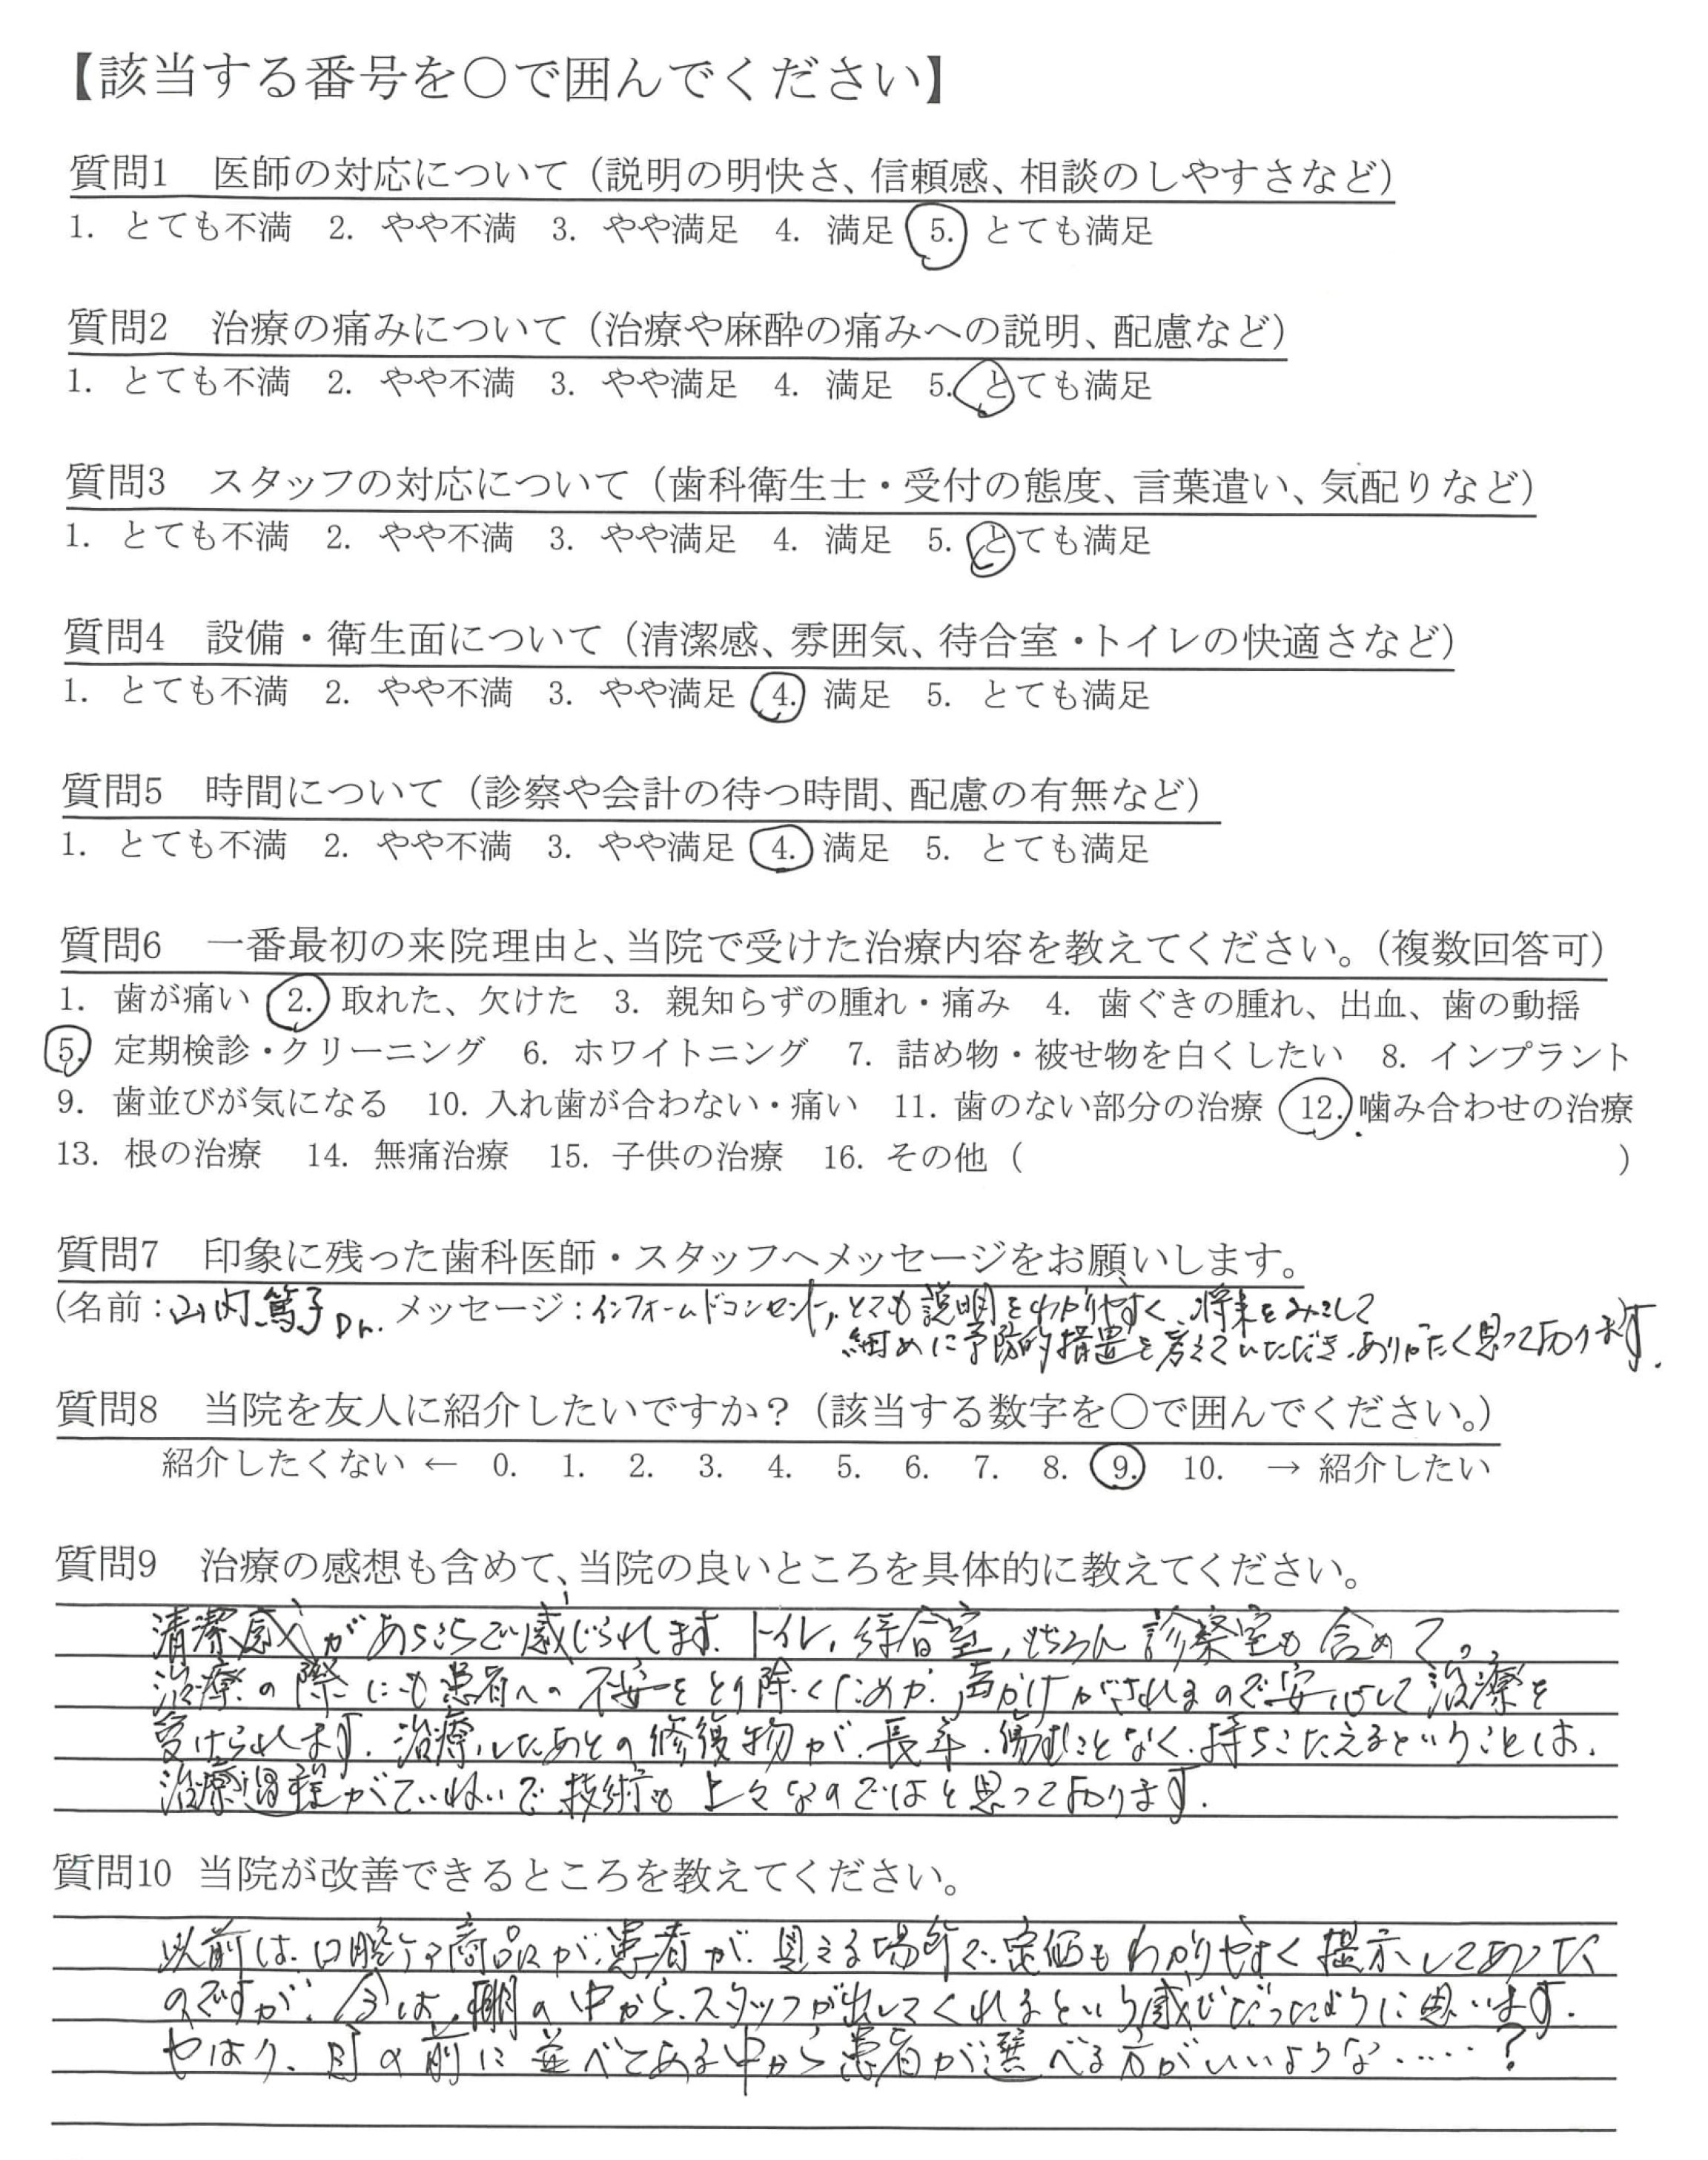 【該当する番号を○で囲んでください】
質問1　医師の対応について（説明の明快さ、信頼感、相談のしやすさなど）
1. とても不満　2. やや不満　3. やや満足　4. 満足　5. とても満足
質問2　治療の痛みについて（治療や麻酔の痛みへの説明、配慮など）
1. とても不満　2. やや不満　3. やや満足　4. 満足　5. とても満足
質問3　スタッフの対応について（歯科衛生士・受付の態度、言葉遣い、気配りなど）
1. とても不満　2. やや不満　3. やや満足　4. 満足　5. とても満足
質問4　設備・衛生面について（清潔感、雰囲気、待合室・トイレの快適さなど）
1. とても不満　2. やや不満　3. やや満足　4. 満足　5. とても満足
質問5　時間について（診察や会計の待つ時間、配慮の有無など）
1. とても不満　2. やや不満　3. やや満足　4. 満足　5. とても満足
質問6　一番最初の来院理由と、当院で受けた治療内容を教えてください。（複数回答可）
1. 歯が痛い　2. 取れた、欠けた　3. 親知らずの腫れ・痛み　4. 歯ぐきの腫れ、出血、歯の動揺
5. 定期検診・クリーニング　6. ホワイトニング　7. 詰め物・被せ物を白くしたい　8. インプラント
9. 歯並びが気になる　10. 入れ歯が合わない・痛い　11. 歯のない部分の治療　12. 噛み合わせの治療
13. 根の治療　14. 無痛治療　15. 子供の治療　16. その他（　　　）
質問7　印象に残った歯科医師・スタッフへメッセージをお願いします。
（名前：山内篤子Dr. メッセージ：インフォームドコンセント、とても説明をわかりやすく、将来をみこして
細めに予防的措置を考えていただき、ありがたく思っております。
質問8　当院を友人に紹介したいですか？（該当する数字を○で囲んでください。）
紹介したくない ← 0. 1. 2. 3. 4. 5. 6. 7. 8. 9. 10. → 紹介したい
質問9　治療の感想も含めて、当院の良いところを具体的に教えてください。
清潔感があちこちで感じられます。トイレ、待合室、もちろん診察室も含めて。
治療の際にも患者への不安をとり除くためか、声かけがされるので安心して治療を
受けられます。治療したあとの修復物が、長年、傷むことなく、持ちこたえるということは、
治療過程がていねいで技術も上々なのではと思っております。
質問10 当院が改善できるところを教えてください。
以前は、口腔ケア商品が、患者が、見える場所で、定価もわかりやすく提示してあった
のですが、今は、棚の中から、スタッフが出してくれるという感じだったように思います。
やはり、目の前に並べてある中から患者が選べる方がいいような……？